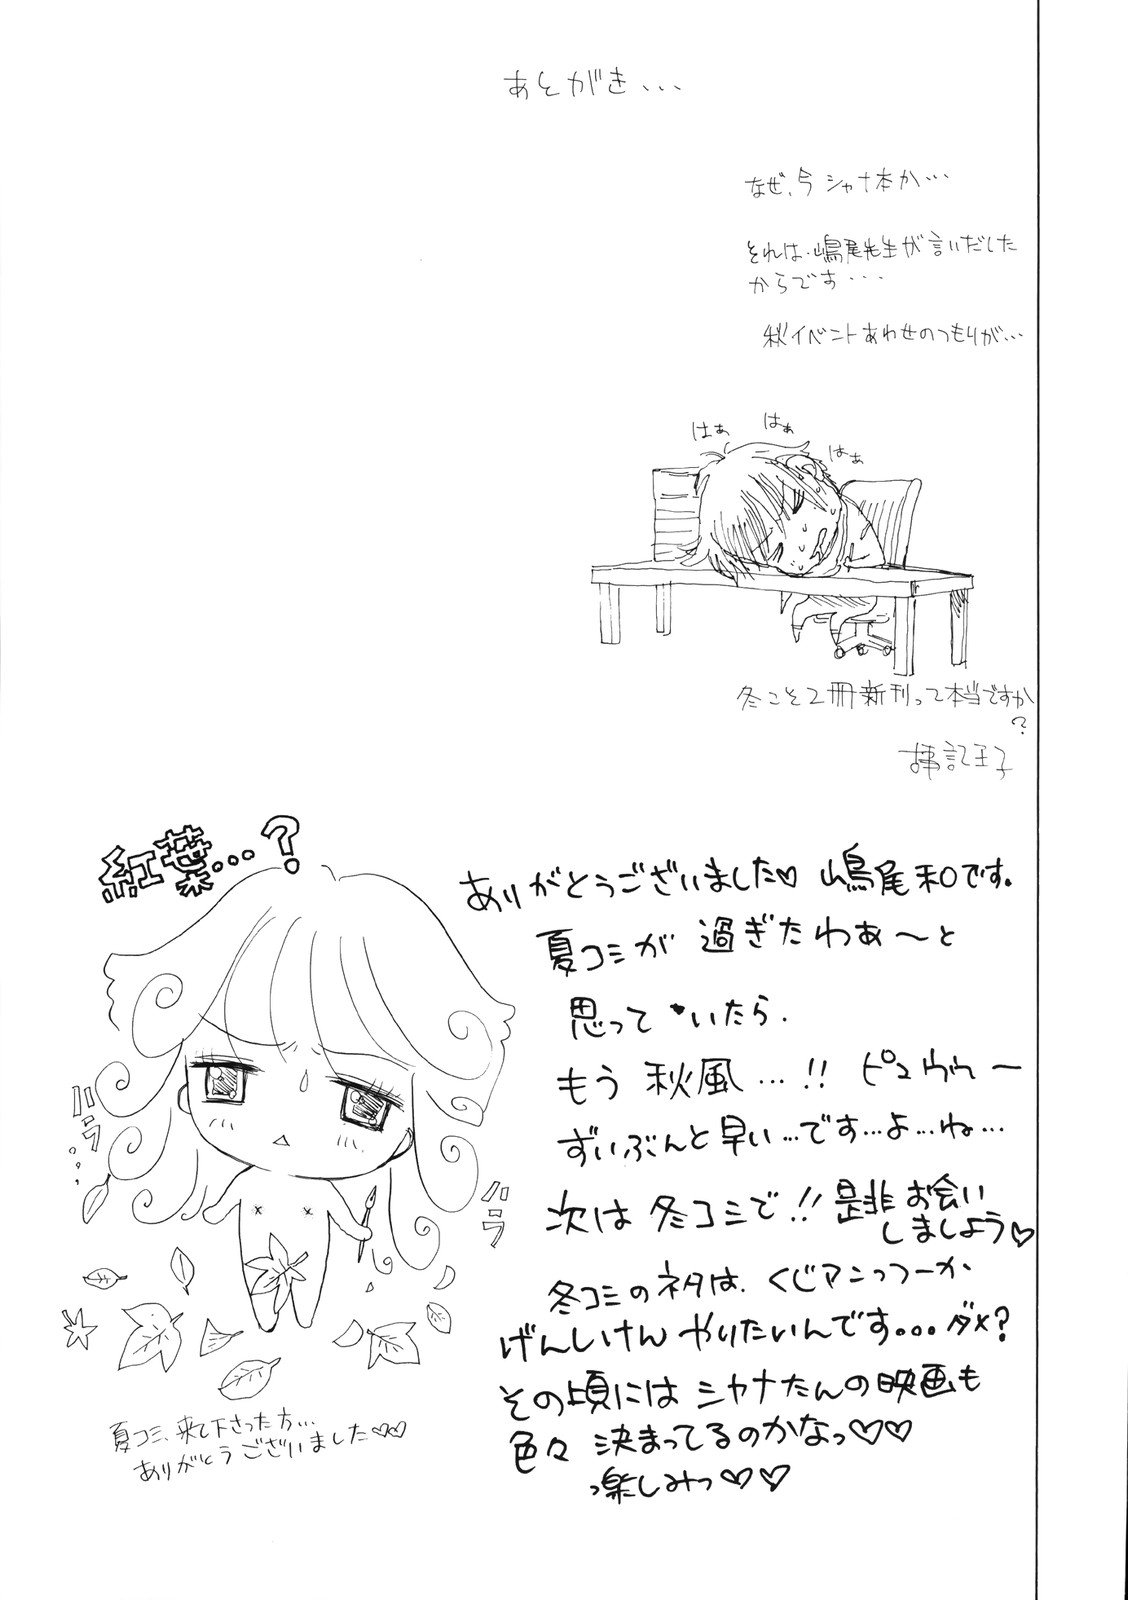 あとがき...
なぜ、今 シャナ本か...
それは、嶋尾先生が言いだした
からです...
秋イベントあわせのつもりが...
はぁ
はぁ
はぁ
冬こそ2冊新刊って本当ですか
?
記王子
紅葉...?
ありがとうございました♡ 嶋尾和です。
夏コミが 過ぎたわぁ〜と
思って いたら.
もう 秋風...!! ピュウゥゥー
ずいぶんと早い...です...よ...ね...
次は 冬コミで!! 是非お会い
しましょう♡
冬コミのネタは、くじアンっつーか
げんしけん やりたいんです... ダメ?
その頃には シャナたんの映画も
色々 決まってるのかなっ♡♡
っ楽しみっ♡♡
ハラ...
ハラ
夏コミ、来て下さった方...
ありがとうございました♡♡